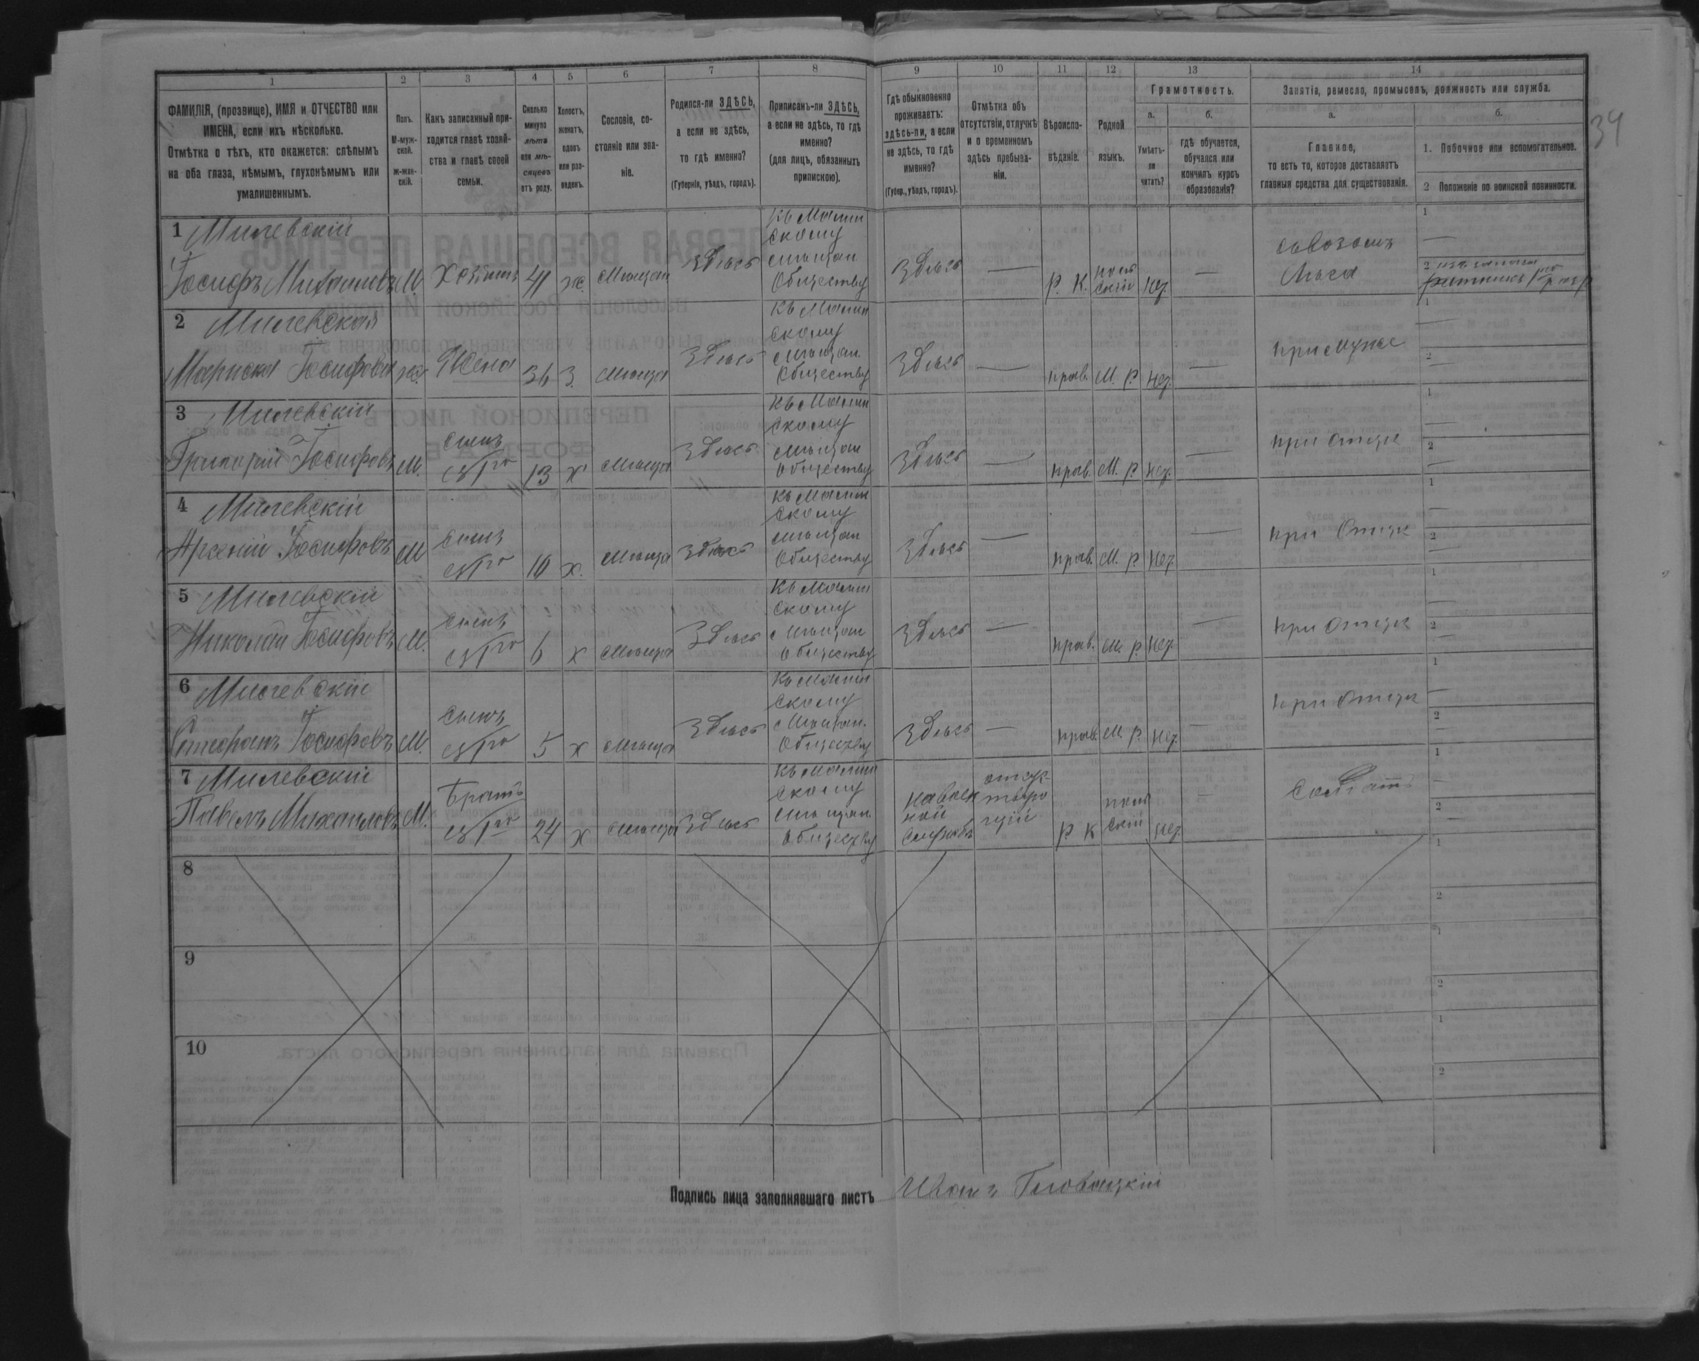 1 2 3 4 5 6 7 8 9 10 11 12 13 14
ФАМИЛІЯ, (прозвище), ИМЯ и ОТЧЕСТВО или
ИМЕНА, если ихъ нѣсколько.
Отмѣтка о тѣхъ, кто окажется: слѣпымъ
на оба глаза, нѣмымъ, глухонѣмымъ или
умалишеннымъ.
Полъ.
М-муж-
ской.
ж-жен-
скій.
Какъ записанный при-
ходится главѣ хозяй-
ства и главѣ своей
семьи.
Сколько
минуло
лѣтъ
или мѣ-
сяцевъ
отъ роду.
Холостъ,
женатъ,
вдовъ
или раз-
веденъ.
Сословіе, со-
стояніе или зва-
ніе.
Родился-ли ЗДѢСЬ,
а если не здѣсь,
то гдѣ именно?
(Губернія, уѣздъ, городъ).
Приписанъ-ли ЗДѢСЬ,
а если не здѣсь, то гдѣ
именно?
(для лицъ, обязанныхъ
припискою).
Гдѣ обыкновенно
проживаетъ:
здѣсь-ли, а если
не здѣсь, то гдѣ
именно?
(Губер., уѣздъ, городъ).
Отмѣтка объ
отсутствіи, отлучкѣ
и о временномъ
здѣсь пребыва-
ніи.
Вѣроиспо-
вѣданіе.
Родной
языкъ.
Грамотность.
а.
Умѣетъ-
ли
читать?
б.
гдѣ обучается,
обучался или
кончилъ курсъ
образованія?
Занятія, ремесло, промыселъ, должность или служба.
а.
Главное,
то есть то, которое доставляетъ
главныя средства для существованія.
б.
1. Побочное или вспомогательное.
2 Положеніе по воинской повинности.
34
1 Милевскій
Іосифъ Михаиловъ М Хозяинъ 41 ж. мѣщан здѣсь
Къ Малин
скому
мѣщан
Обществу
Здѣсь — Р. К. поль
скій нѣт —
1 —
2
2 Милевская
Мариска Іосифова ж Жена 36 З мѣщан Здѣсь
Къ Малин
скому
мѣщан
Обществу
Здѣсь — прав. М. Р. нѣт — при мужѣ
1 —
2 —
3 Милевскій
Григорій Іосифовъ М. сынъ
его 13 х мѣщан Здѣсь
Къ Малин
скому
мѣщан
Обществу
Здѣсь — прав. М. Р. нѣт — при отцѣ
1 —
2 —
4 Милевскій
Арсеній Іосифовъ М сынъ
его 10 х. мѣщан Здѣсь
Къ Малин
скому
мѣщан
Обществу
Здѣсь — прав. М. Р. нѣт — при Отцѣ
1 —
2 —
5 Милевскій
Николай Іосифовъ М. сынъ
его 6 х мѣщан Здѣсь
Къ Малин
скому
мѣщан
Обществу
Здѣсь — прав. М. Р. нѣт — при отцѣ
1 —
2 —
6 Милевскій
Стефанъ Іосифовъ М. сынъ
его 5 х мѣщан Здѣсь
Къ Малин
скому
мѣщан.
Обществу
Здѣсь — прав. М. Р. нѣт — при Отцѣ
1 —
2 —
7 Милевскій
Павелъ Михаиловъ М. Братъ
его 24 х мѣщан Здѣсь
Къ Малин
скому
мѣщан.
Обществу
на воен
ной
службѣ
Р К поль
скій нѣт — Солдатъ
1 —
2 —
8
1
2
9
1
2
10
1
2
Подпись лица заполнявшаго листъ Иванъ Головацкій